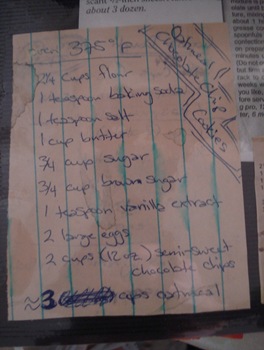 about 3 dozen.
Oven 375° F
Oatmeal
Chocolate Chip
Cookies
2 1/4 cups flour
1 teaspoon baking soda
1 teaspoon salt
1 cup butter
3/4 cup sugar
3/4 cup brown sugar
1 teaspoon vanilla extract
2 large eggs
2 cups (12 oz) semi-sweet
chocolate chips
≈3 cups oatmeal